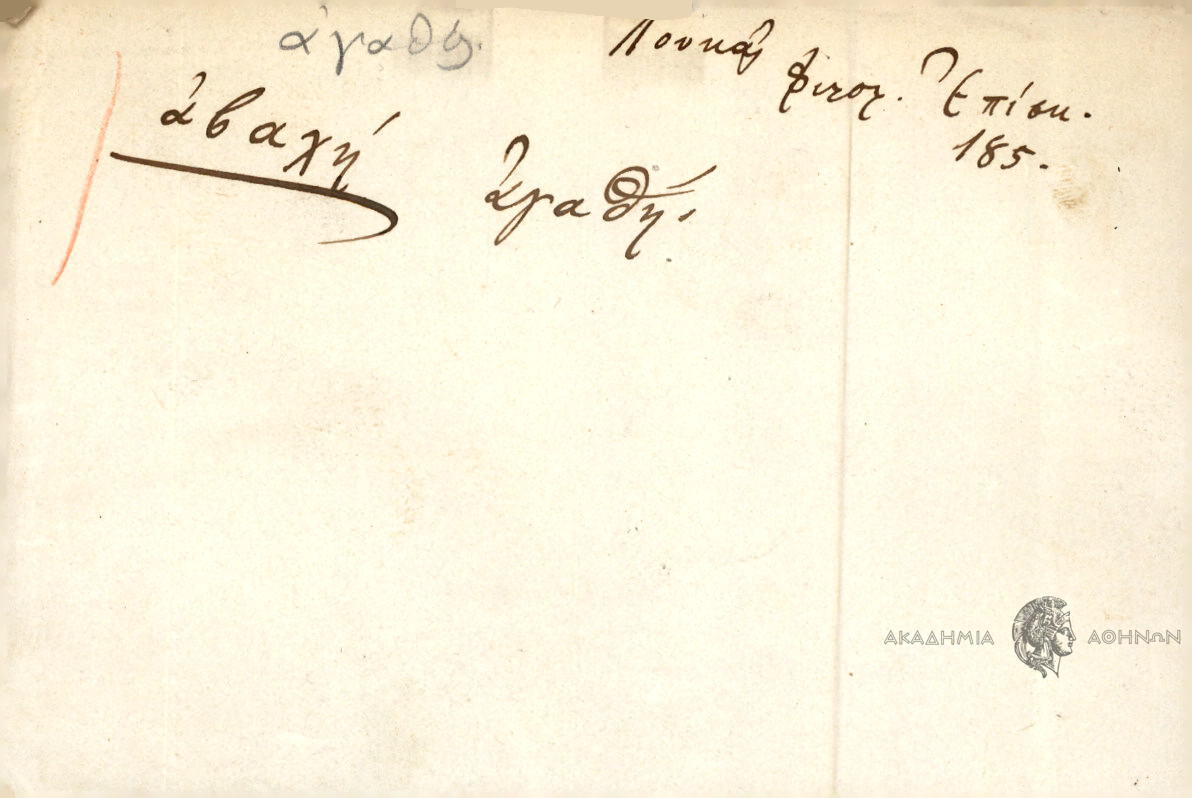 ἀγαθός.
Λουκᾶς
Φιλος. Ἐπίσκ.
185.
ἀβαχή
Ἀγαθή.
ΑΚΑΔΗΜΙΑ ΑΘΗΝΩΝ